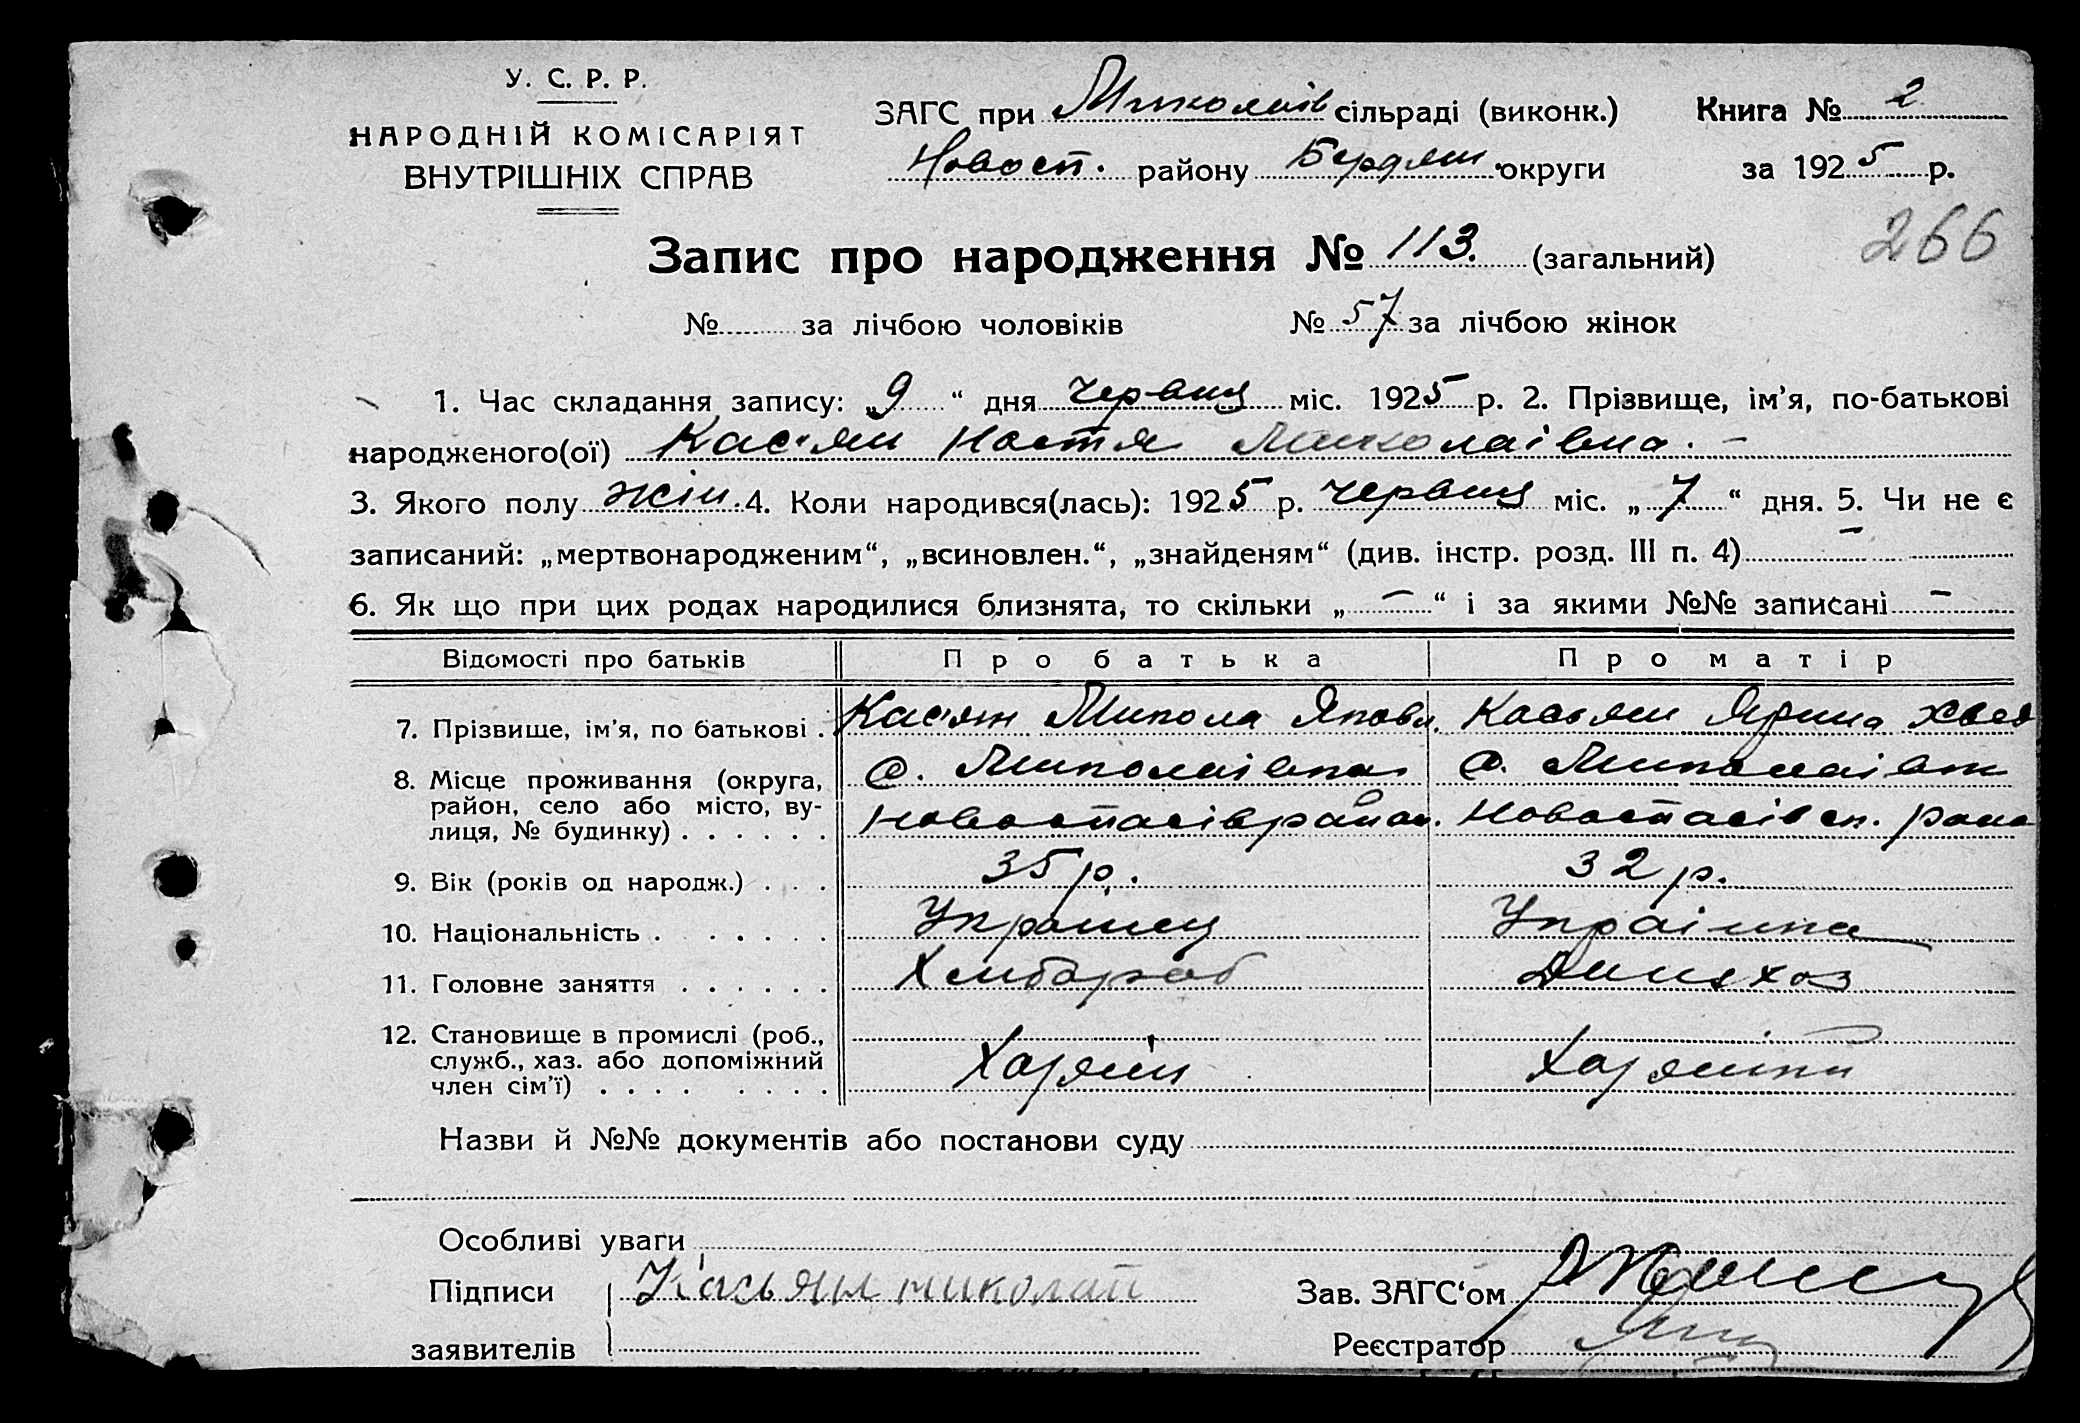 У. С. Р. Р.
НАРОДНІЙ КОМІСАРІЯТ
ВНУТРІШНІХ СПРАВ
ЗАГС при Миколаїв сільраді (виконк.)
Новосп. району Бердян. округи
Книга № 2
за 1925 р.
266
Запис про народження № 113. (загальний)
№ за лічбою чоловіків № 57 за лічбою жінок
1. Час складання запису: „9“ дня червця міс. 1925 р. 2. Прізвище, ім’я, по-батькові
народженого(ої) Кас'ян Настя Миколаівна. —
3. Якого полу жін. 4. Коли народився(лась): 1925 р. червця міс. „7“ дня. 5. Чи не є
записаний: „мертвонародженим“, „всиновлен.“, „знайденям“ (див. інстр. розд. III п. 4) —
6. Як що при цих родах народилися близнята, то скільки „—“ і за якими №№ записані —
Відомості про батьків Про батька Про матір
7. Прізвище, ім’я, по батькові . Кас'ян Микола Якови. Касьян Ярина Хвед
8. Місце проживання (округа, с. Миколаівка с. Миколаівк
район, село або місто, ву-
лиця, № будинку) . . . . . . Новоспасів район. Новоспасівск. рано
9. Вік (років од народж.) . . . 35 р. 32 р.
10. Національність . . . . . . Украінец Украінка
11. Головне заняття . . . . . . Хлібороб Домохоз
12. Становище в промислі (роб.,
служб., хаз. або допоміжний
член сім’ї) . . . . . . . . Хазяін
Назви й №№ документів або постанови суду
Особливі уваги
Підписи Касьян николай Зав. ЗАГС‘ом
заявителів Реєстратор